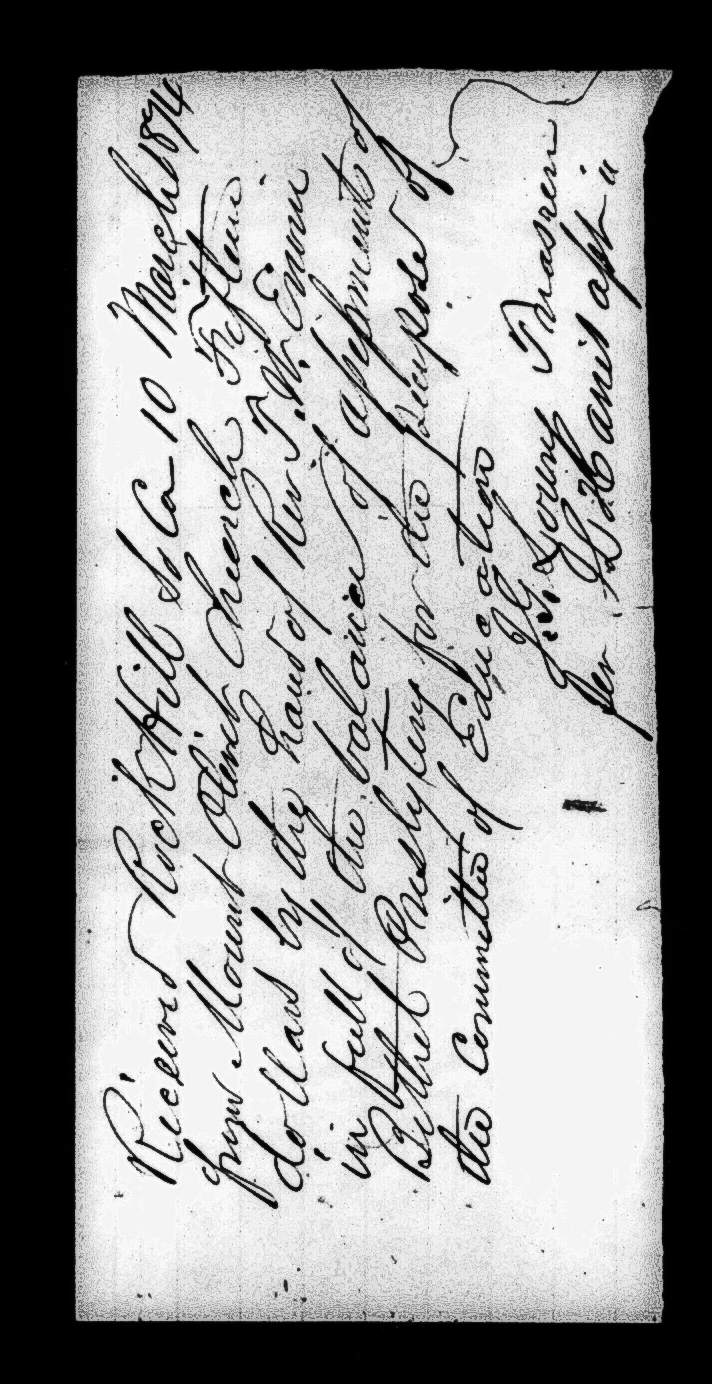 Received Rock Hill So Ca 10 March 1874
from Mount Olivet Church Fifteen
dollars by the hand of Rev T. W. Erwin
in full of the balance of apsments of
Bethel Presbytery for the purpose of
the Committee of Education
J G Lowry Treasurer
per Harris